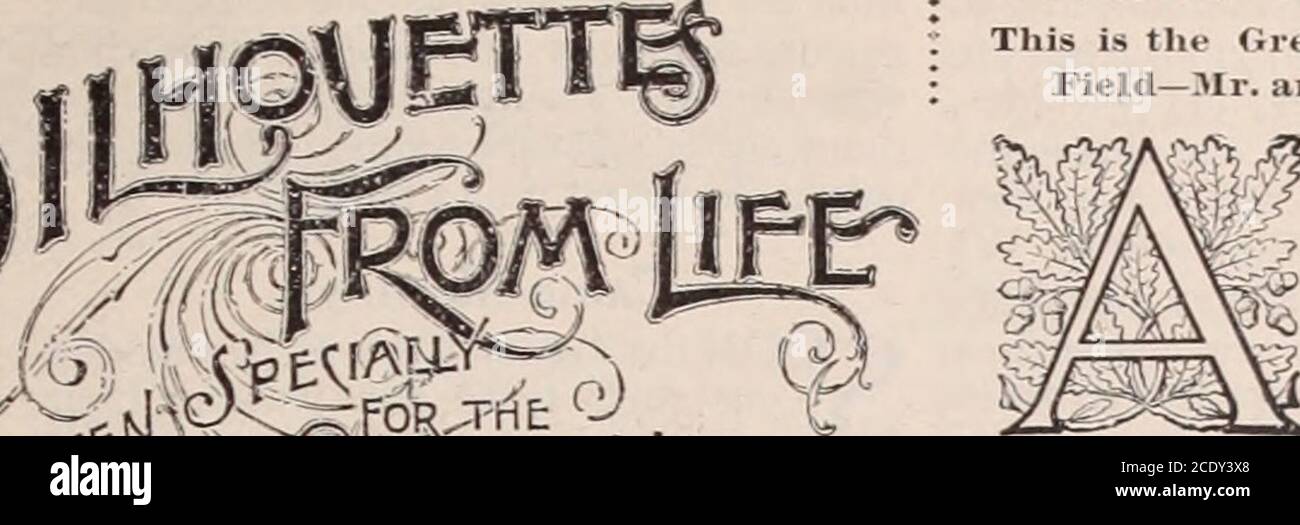 SILHOUETTES
FROM LIFE
SPECIALLY
FOR THE
This is the
Field—Mr.
A
alamy
Image ID: 2CDY3X8
www.alamy.com